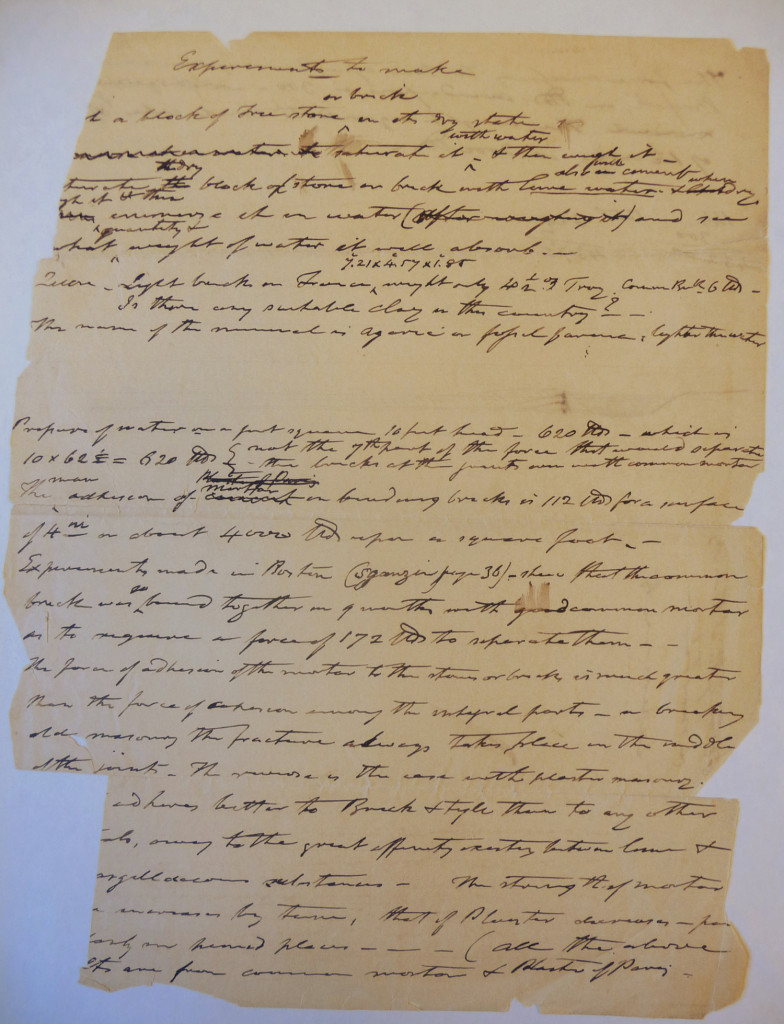 Experiments to make
or brick
a block of Free stone in its dry state &
with water
saturate it - & then weigh it -
the dry
block of stone or brick with lime water
immerse it in water (after weighing it) and see
quantity &
what weight of water it will absorb. -
7.21 x 4.57 x 1.85
light bricks in France, weight only 4 1/2 Troy. Common Bricks 6 lbs -
Is there any suitable clay in this country? -
The name of the mineral is agaric or fossil farina; lighter than water
Pressure of water on a foot square 10 feet head - 620 lbs - which is
not the 7th part of the force that would separate
10 x 62 = 620 lbs
the bricks at the joints even with common mortar
Plaster of Paris
mortar
The adhesion of cement in binding bricks is 112 lbs for a surface
of 4 in or about 4000 lbs upon a square foot. -
Experiments made in Boston (Sganzin page 36) - shew that the common
so
brick was bound together in 4 months with good common mortar
as to require a force of 172 lbs to separate them - -
The force of adhesion of the mortar to the stones or bricks is much greater
than the force of cohesion among the integral parts - in breaking
old masonry the fracture always takes place in the middle
of the joints - The reverse is the case with plaster masonry.
adheres better to Brick & tyle than to any other
owing to the great affinity existing between lime &
argillaceous substances - The strength of mortar
increases by time, that of Plaster decreases -
in places - - - (all the above
are from common mortar & Plaster of Paris -